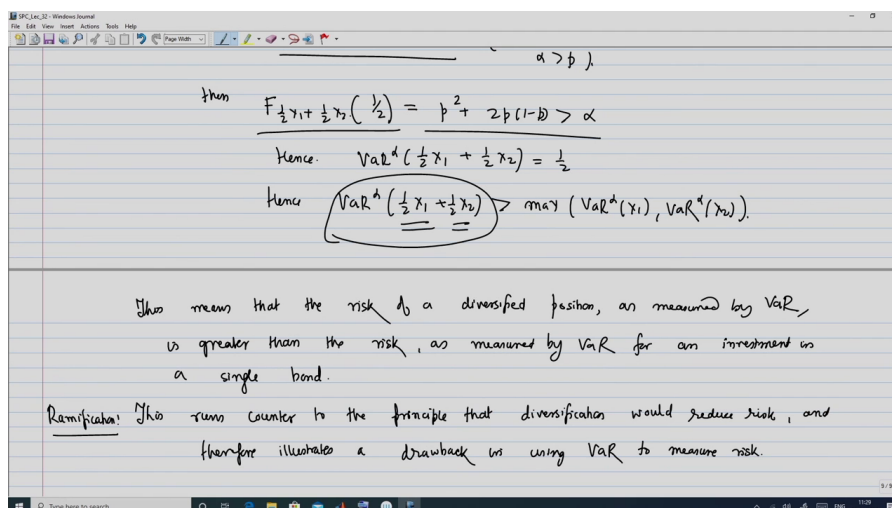 SPC_Lec_32 - Windows Journal
File Edit View Insert Actions Tools Help
Page Width
α > p ).
then F_{½x₁ + ½x₂} ( ½ ) = p² + 2p(1-p) > α
Hence. VaR^α ( ½ x₁ + ½ x₂ ) = ½
Hence VaR^α ( ½ x₁ + ½ x₂ ) > max ( VaR^α(x₁), VaR^α(x₂) ).
This means that the risk of a diversified position, as measured by VaR,
is greater than the risk, as measured by VaR for an investment in
a single bond.
Ramification: This runs counter to the principle that diversification would reduce risk, and
therefore illustrates a drawback in using VaR to measure risk.
9/9
Type here to search
ENG 11:29